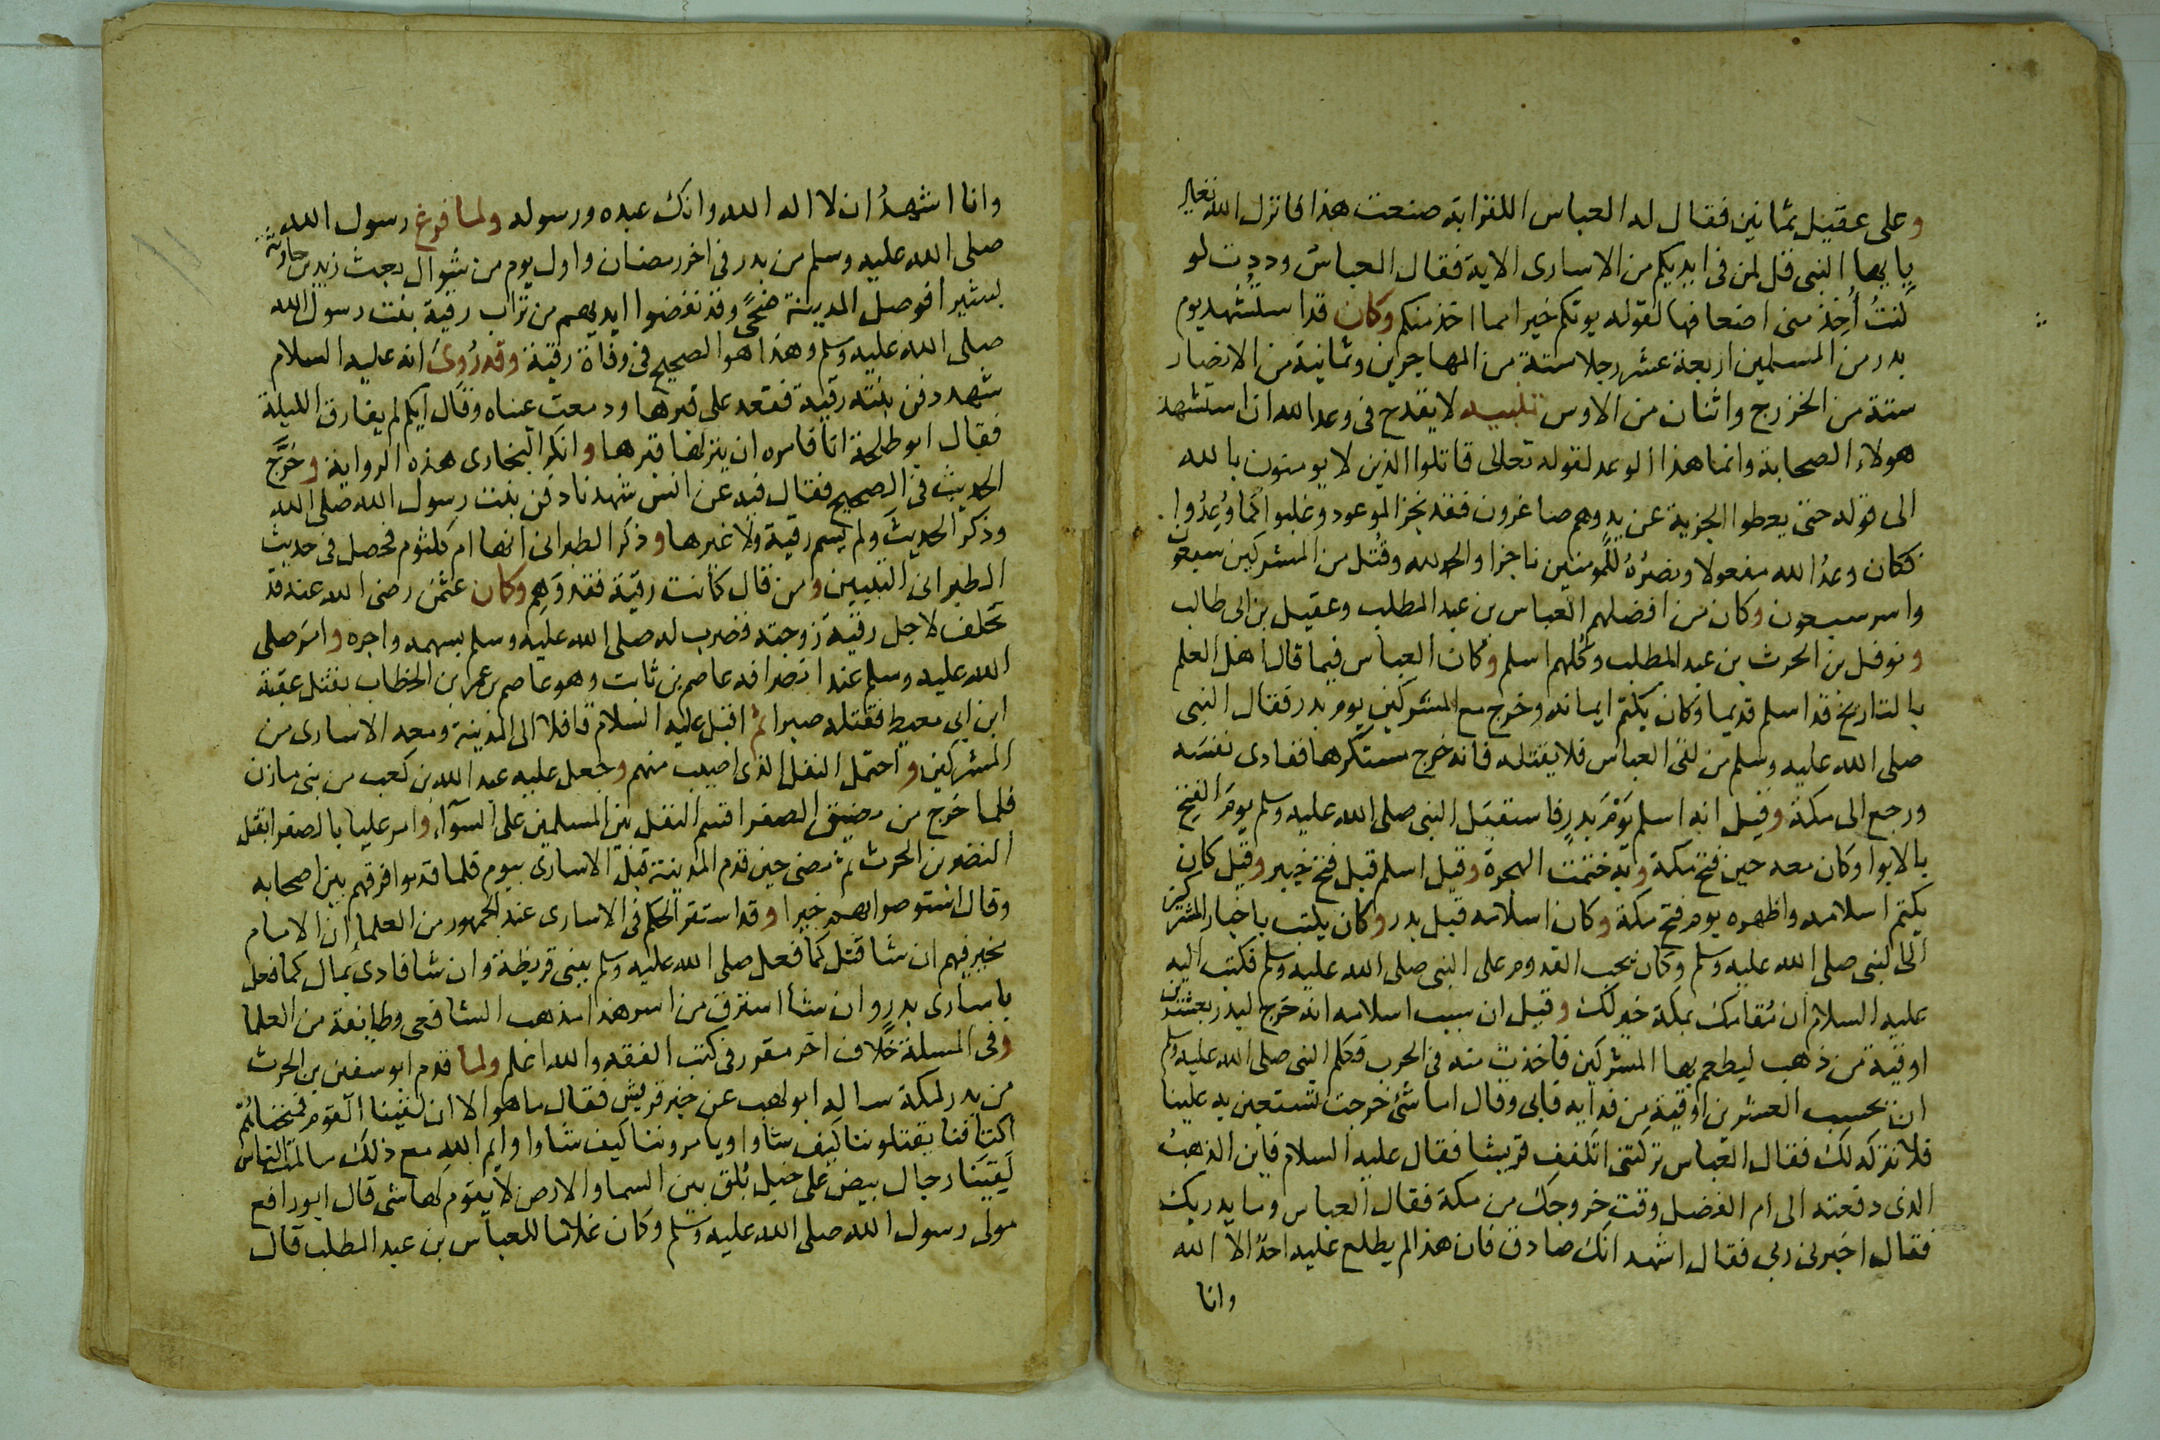 وعلى عقيل ثمانين فقال له العباس اللقرابة صنعت هذا فانزل الله تعالى
يايها النبى قل لمن فى ايديكم من الاسارى الاية فقال العباس وددت لو
كنتُ أُخِذ منى اضعافها لقوله يوتكم خيرا مما اخذ منكم وكان قد استشهد يوم
بدر من المسلمين اربعة عشر رجلا ستة من المهاجرين وثمانية من الانصار
ستة من الخزرج واثنان من الاوس تنبيه لا يقدح فى وعد الله ان استشهد
هولاء الصحابة وانما هذا الوعد لقوله تعالى قاتلوا الذين لا يومنون بالله
الى قوله حتى يعطوا الجزية عن يد وهم صاغرون فقد نجز الموعود وغلبوا كما وُعِدُوا
فكان وعدُ الله مفعولا ونصرُهُ للمومنين ناجزا والحمد لله وقُتل من المشركين سبعون
واسر سبعون وكان من افضلهم العباس بن عبد المطلب وعقيل بن ابى طالب
ونوفل بن الحرث بن عبد المطلب وكُلهم اسلم وكان العباس فيما قال اهل العلم
بالتاريخ قد اسلم قديما وكان يكتم ايمانه وخرج مع المشركين يوم بدر فقال النبى
صلى الله عليه وسلم من لقى العباس فلا يقتله فانه خرج مستكرها ففادى نفسه
ورجع الى مكة وقيل انه اسلم يَوْمَ بدرٍ فاستقبل النبى صلى الله عليه وسلم يومَ الفتح
بالابوا وكان معه حين فتح مكة وبه ختمت الهجرة وقيل اسلم قبل فتح خيبر وقيل كان
يكتم اسلامه واظهره يوم فتح مكة وكان اسلامه قبل بدر وكان يكتب باخبار المشركين
الى النبى صلى الله عليه وسلم وكان يحب القدوم على النبى صلى الله عليه وسلم فكتب اليه
عليه السلام ان مُقامك بمكة خير لك وقيل ان سبب اسلامه انه خرج لبدر بعشرين
اوقية من ذهب ليطعم بها المشركين فاخذت منه فى الحرب فكلم النبى صلى الله عليه وسلم
ان تحسب العشرين اوقية من فدايه فابى وقال اما شئ خرجت تستعين به علينا
فلا نتركه لك فقال العباس تركتنى اتكفف قريشا فقال عليه السلام فاين الذهبُ
الذى دفعته الى ام الفضل وقت خروجك من مكة فقال العباس وما يدريك
فقال اخبرنى ربى فقال اشهد انك صادق فان هذا لم يطلع عليه احدٌ الا الله
وانا
وانا اشهدُ ان لا اله الا الله وانك عبده ورسوله ولما فرغ رسول الله
صلى الله عليه وسلم من بدر فى اخر رمضان واول يوم من شوال بعث زيد بن حارثة
بشيرا فوصل المدينة ضحًى وقد نفضوا ايديهم من تراب رقية بنت رسول الله
صلى الله عليه وسلم وهذا هو الصحيح فى وفاة رقية وقد رُوِى انه عليه السلام
شهد دفن بنته رقية فقعد على قبرها ودمعت عيناه وقال ايكم لم يقارف الليلة
فقال ابو طلحة انا فامره ان ينزل فى قبرها وانكر البخارى هذه الرواية وخرّج
الحديث فى الصحيح فقال فيه عن انس شهدنا دفن بنت رسول الله صلى الله
وذكر الحديث ولم يسم رقية ولا غيرها وذكر الطبرانى انها ام كلثوم فحصل فى حديث
الطبرانى التبيين ومن قال كانت رقية فقد وَهِم وكان عثمن رضى الله عنه قد
تخلف لاجل رقية زوجته فضرب له صلى الله عليه وسلم بسهمه واجره وامر صلى
الله عليه وسلم عند انصرافه عاصم بن ثابت وهو عاصم بن عمر ابن الخطاب بقتل عقبة
ابن ابى معيط فقتله صبرا ثم اقبل عليه السلام قافلا الى المدينة ومعه الاسارى من
المشركين واحتمل النفل الذى اصيب منهم وجعل عليه عبد الله بن كعب من بنى مازن
فلما خرج من مضيق الصفرا قسم النفل بين المسلمين على السوآء وامر عليا بالصفرا بقتل
النضر بن الحرث ثم مضى حين قدم المدينة قبل الاسارى بيوم فلما قدموا فرقهم بين اصحابه
وقال استوصوا بهم خيرا وقد استقر الحكم فى الاسارى عند الجمهور من العلما ان الامام
مخير فيهم ان شا قتل كما فعل صلى الله عليه وسلم ببنى قريظة وان شا فادى بمال كما فعل
باسارى بدر وان شأ استرق من اسر هذا مذهب الشافعى وطايفة من العلما
وفى المسئلة خلاف اخر مقرر فى كتب الفقه والله اعلم ولما قدم ابو سفين بن الحرث
من بدر لمكة ساله ابو لهب عن خبر قريش فقال ما هو الا ان لقينا القوم فمنحناهُمُ
اكتافنا يقتلوننا كيف شاوا ويامروننا كيف شاوا وايم الله مع ذلك ما لمت الناس
لَقِيَنَا رجال بيض على خيل بُلق بين السما والارض لا يقوم لها شى قال ابو رافع
مولى رسول الله صلى الله عليه وسلم وكان غلاما للعباس بن عبد المطلب قال